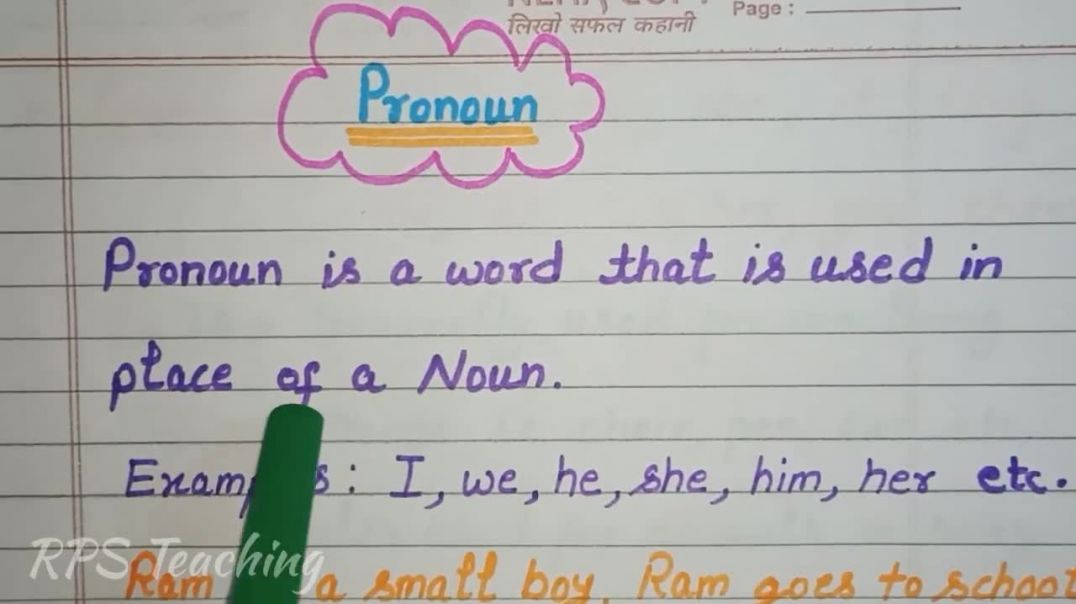 लिखो सफल कहानी
Page :
Pronoun
Pronoun is a word that is used in
place of a Noun.
Exam s : I, we, he, she, him, her etc.
Ram a small boy. Ram goes to school
RPS Teaching